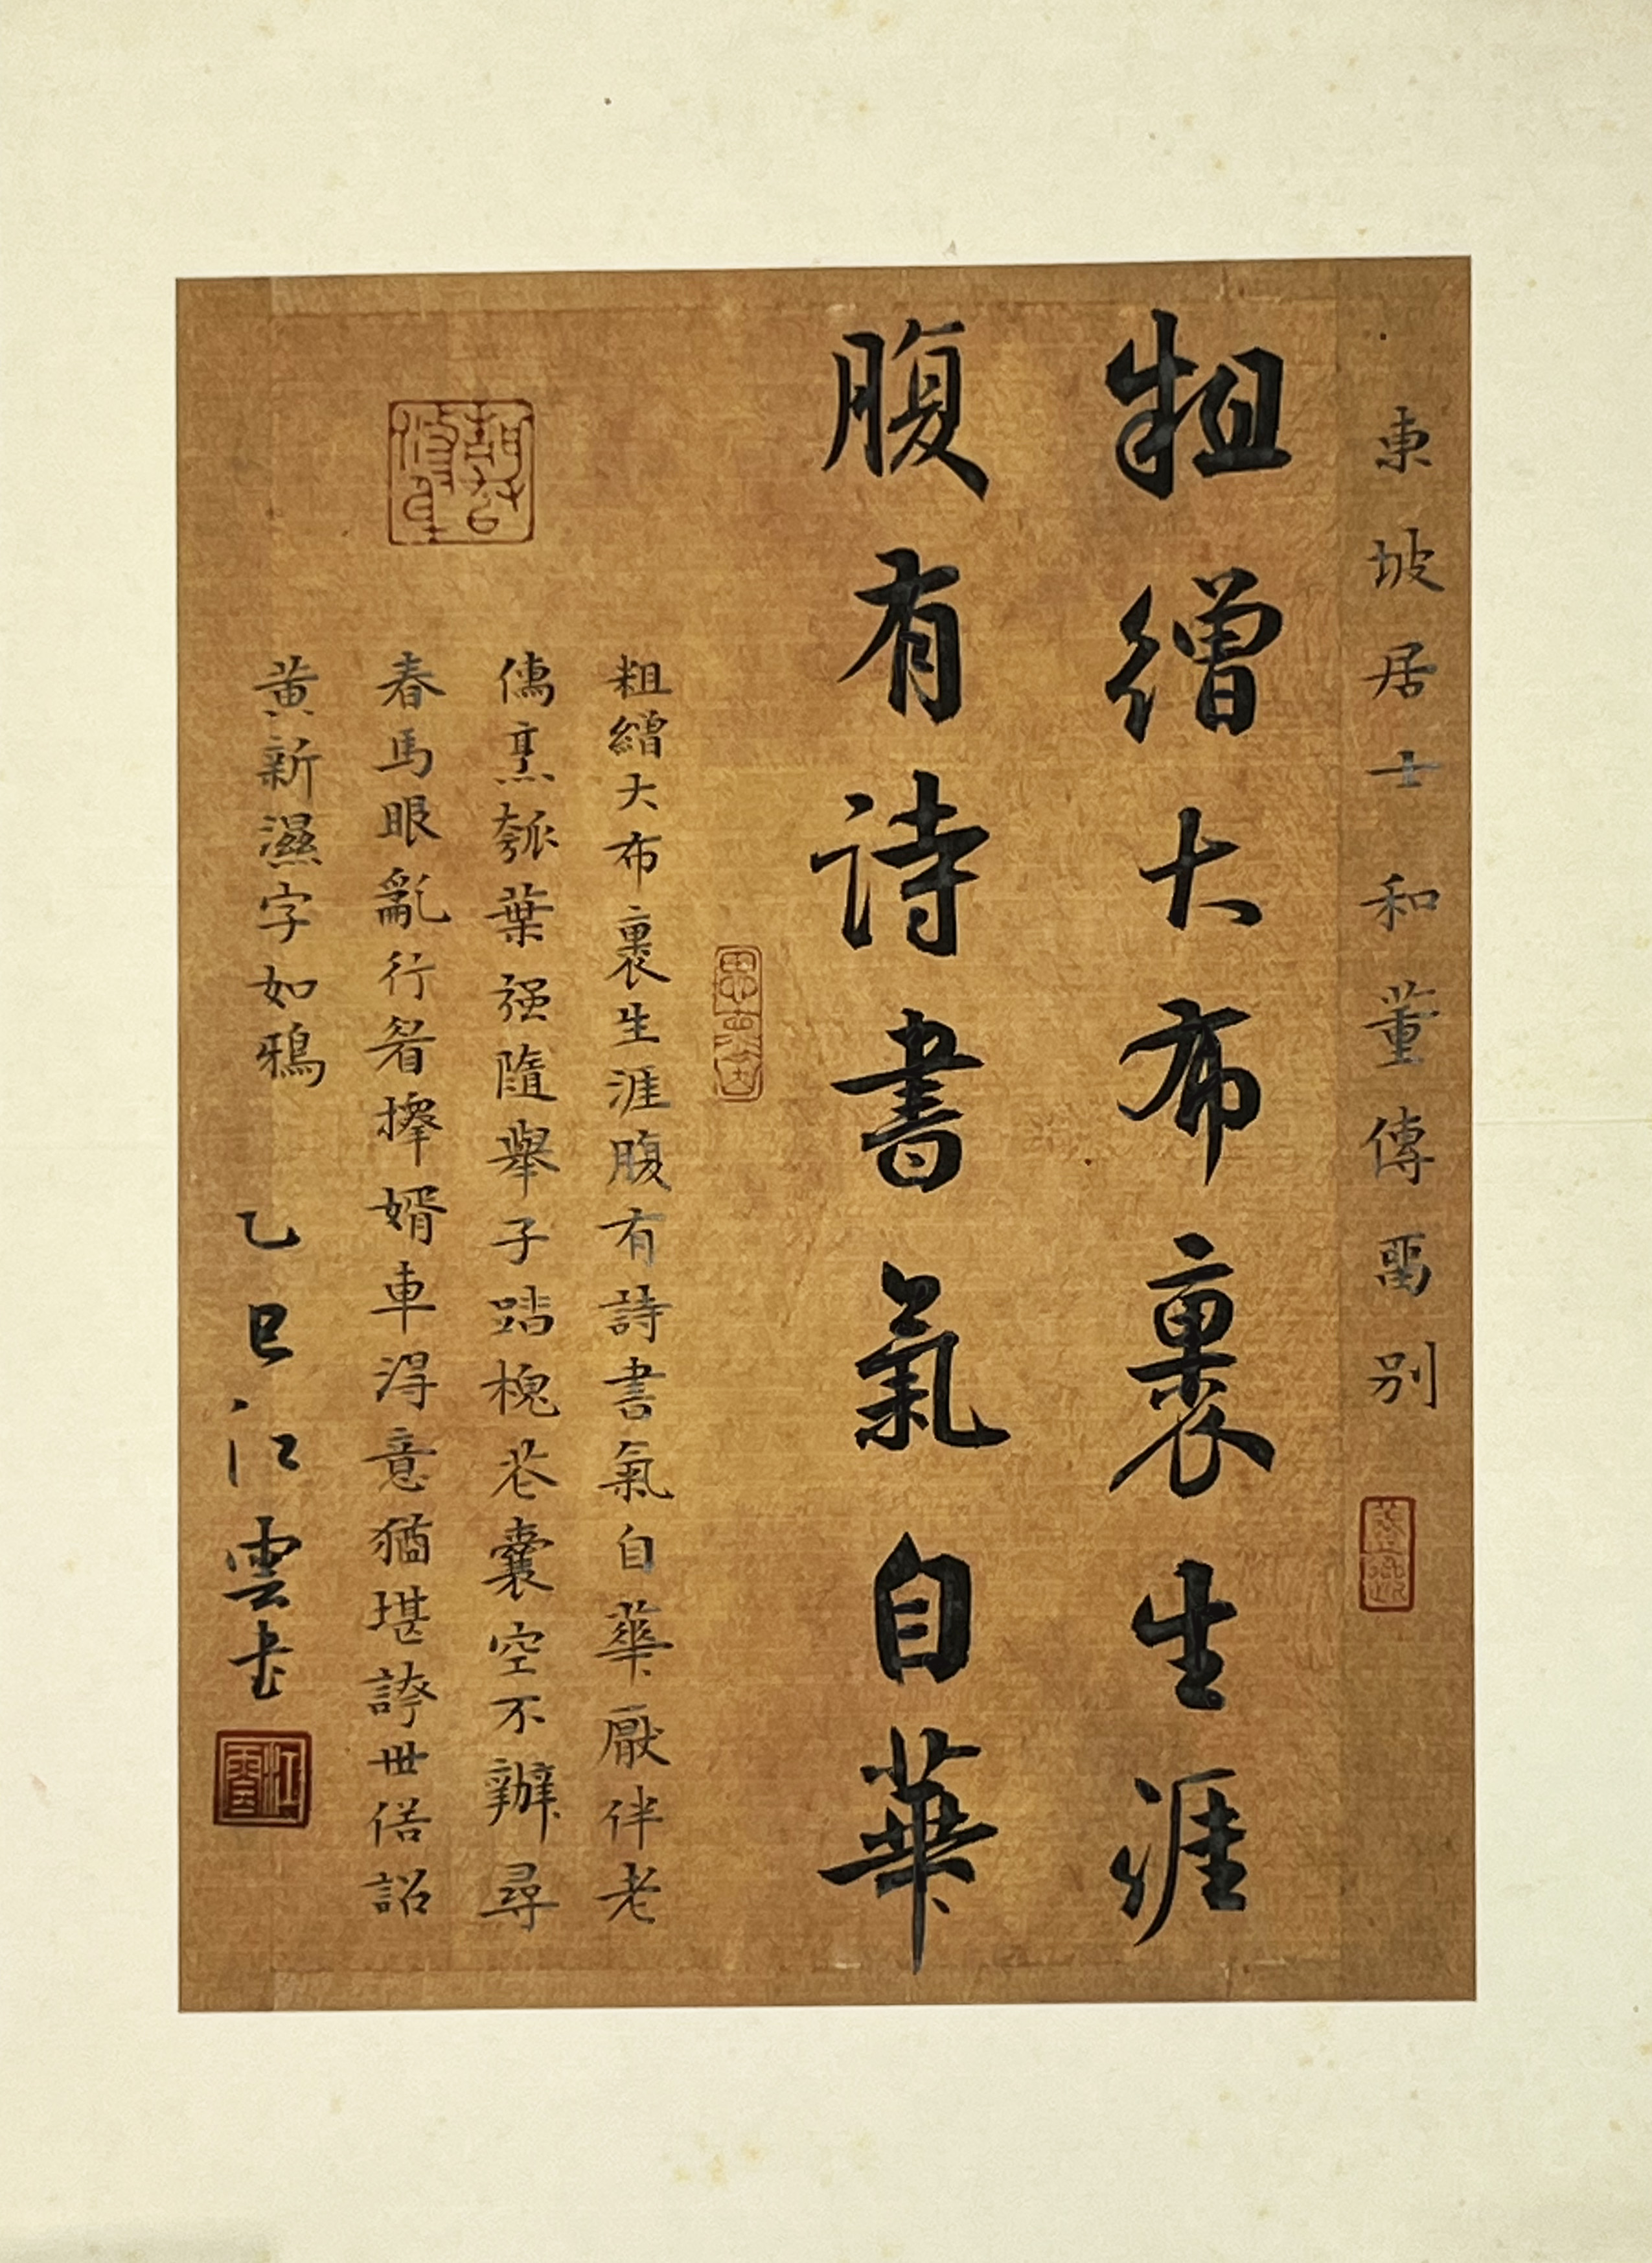 東坡居士和董傳留別
粗繒大布裹生涯
腹有詩書氣自華
粗繒大布裹生涯腹有詩書氣自華厭伴老
儒烹瓠葉强隨舉子踏槐花囊空不辦尋
春馬眼亂行看擇婿車得意猶堪誇世俗詔
黃新濕字如鴉
乙巳江雲书
江雲